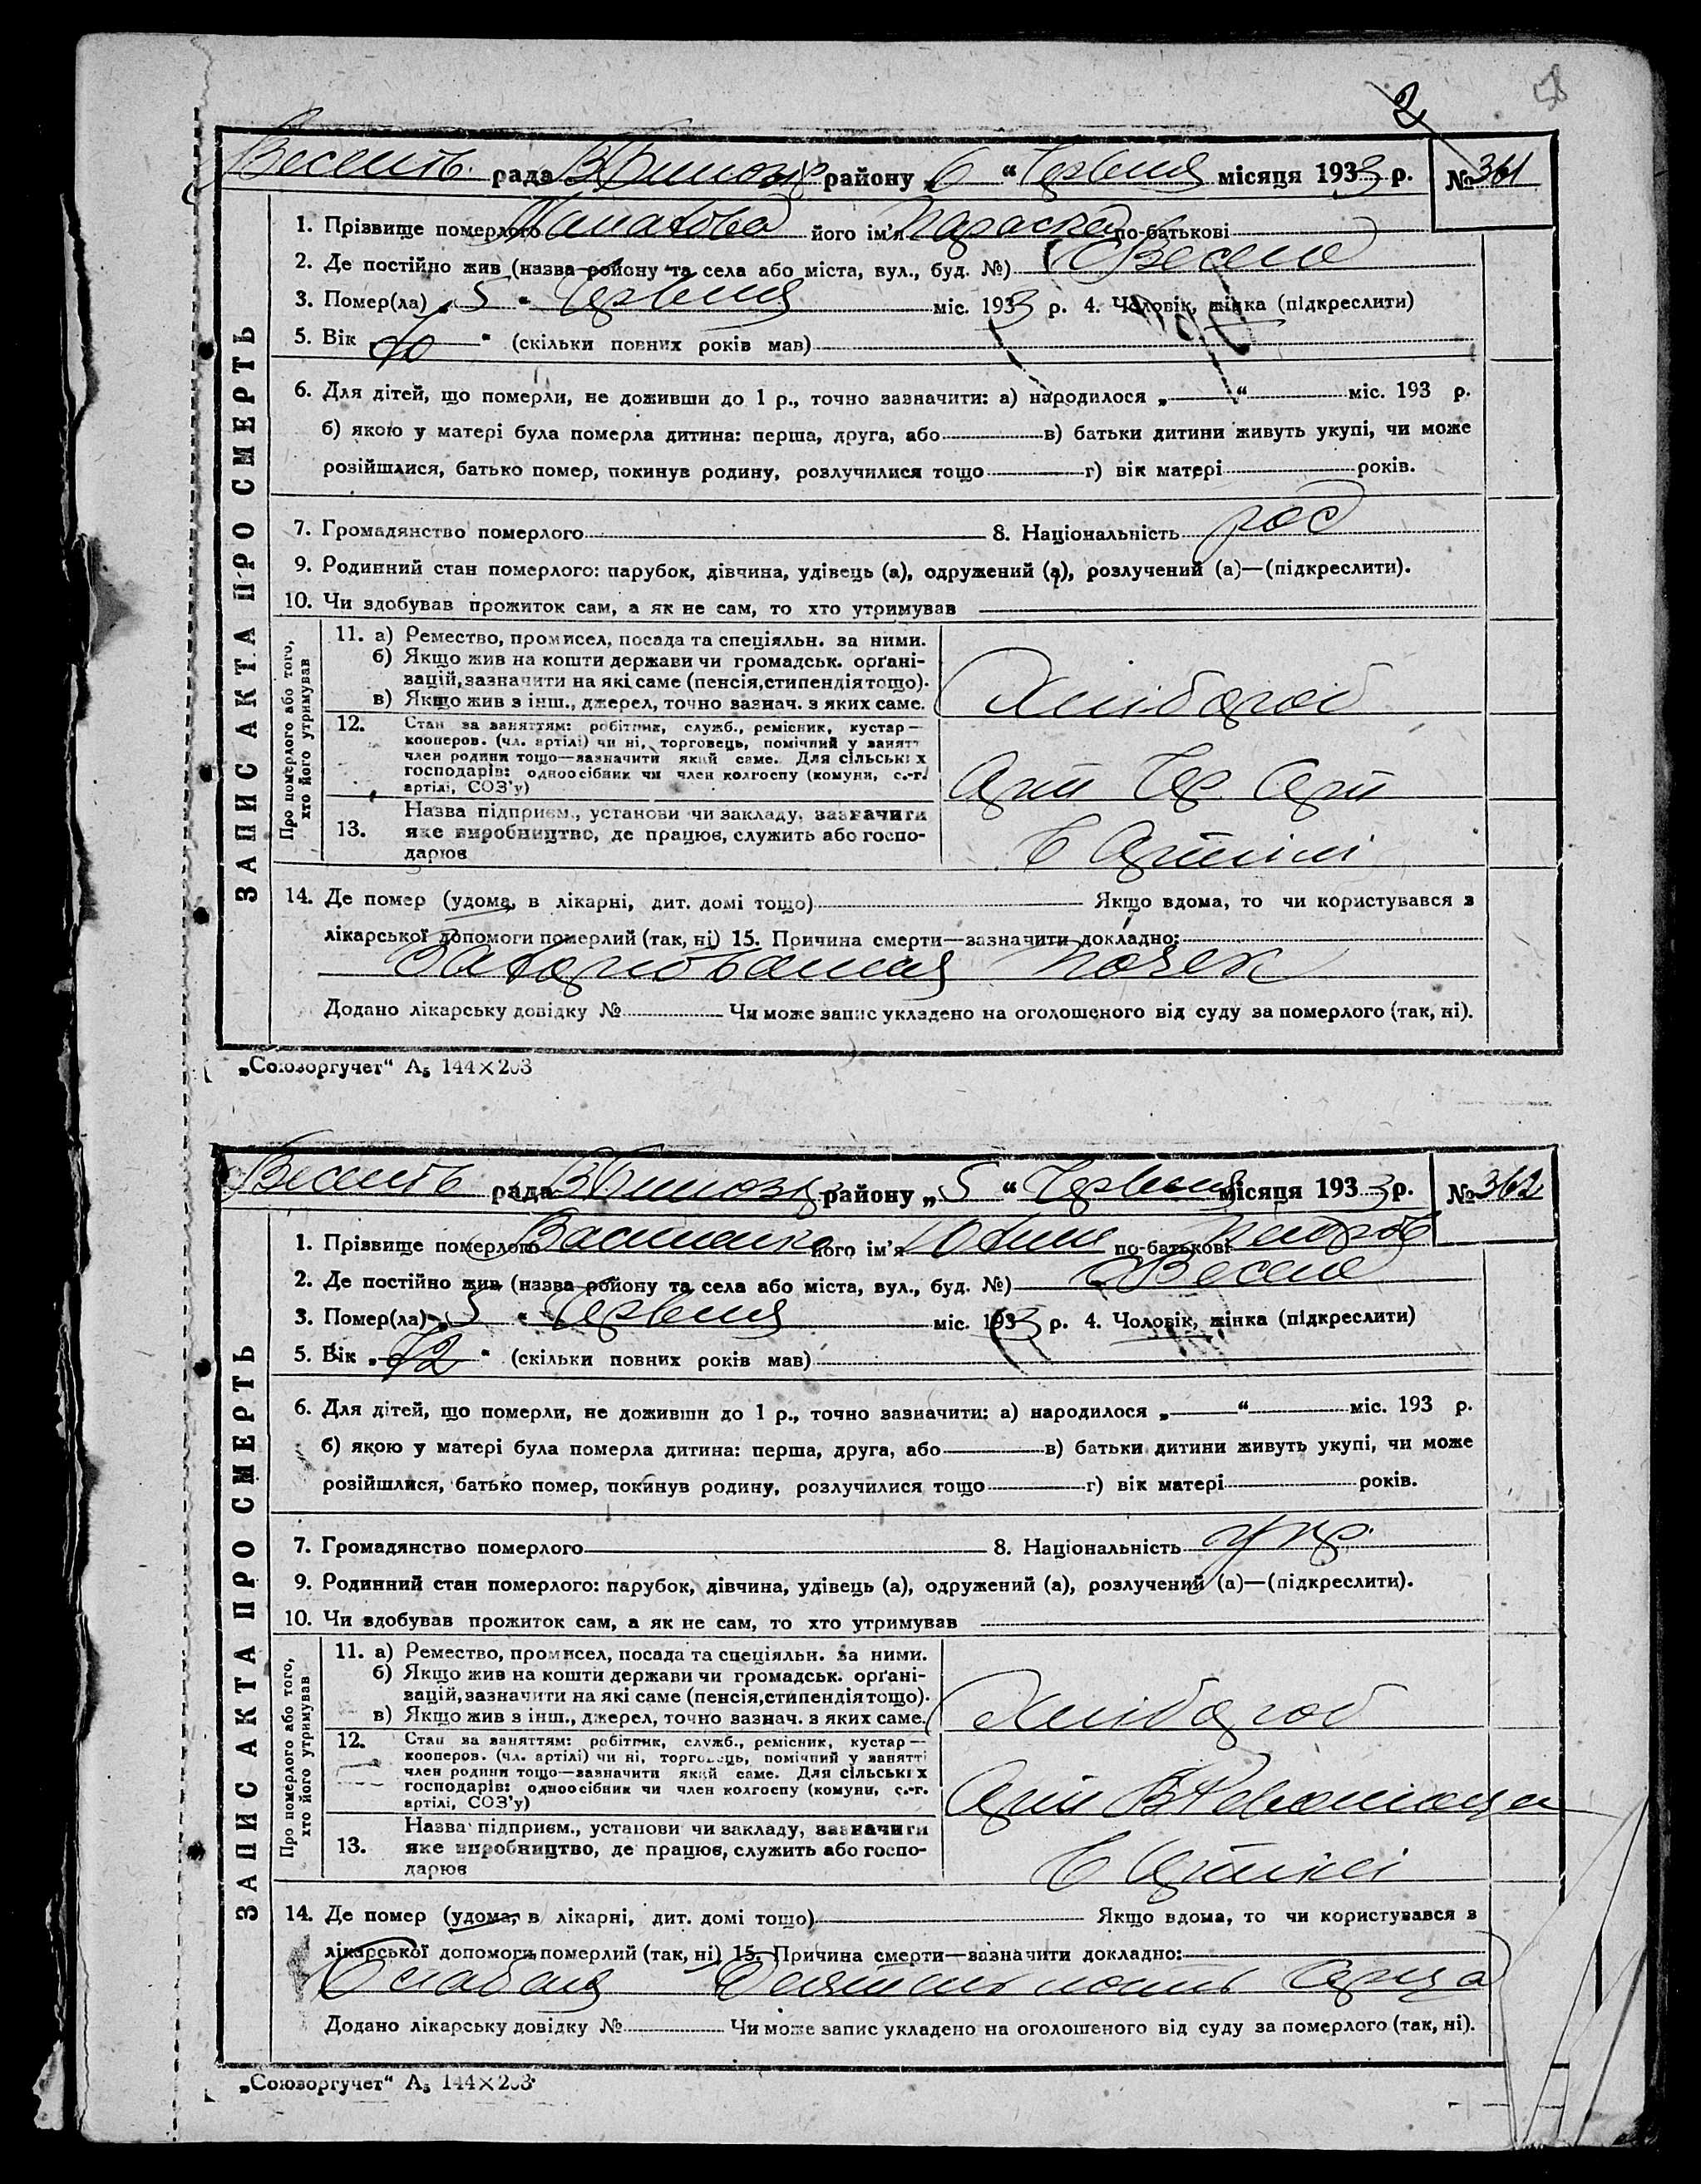 2
Веселів. рада району „6“ Червня місяця 1933 р. № 361
1. Прізвище померлого його ім'я Параска по-батькові
2. Де постійно жив (назва району та села або міста, вул., буд. №) с Веселе
3. Помер(ла) „5“ Червня міс. 1933 р. 4. Чоловік, жінка (підкреслити)
5. Вік „ “ (скільки повних років мав)
6. Для дітей, що померли, не доживши до 1 р., точно зазначити: а) народилося „ “ міс. 193 р.
б) якою у матері була померла дитина: перша, друга, або в) батьки дитини живуть укупі, чи може
розійшлися, батько помер, покинув родину, розлучилися тощо г) вік матері років.
7. Громадянство померлого 8. Національність рос
9. Родинний стан померлого: парубок, дівчина, удівець (а), одружений (а), розлучений (а)—(підкреслити).
10. Чи здобував прожиток сам, а як не сам, то хто утримував
ЗАПИС АКТА ПРО СМЕРТЬ
Про померлого або того,
хто його утримував
11. а) Ремество, промисел, посада та спеціяльн. за ними.
б) Якщо жив на кошти держави чи громадськ. орґані-
зацій, зазначити на які саме (пенсія, стипендія тощо).
в) Якщо жив з інш., джерел, точно зазнач. з яких саме.
Хлібороб
12. Стан за заняттям: робітник, служб., ремісник, кустар—
кооперов. (чл. артілі) чи ні, торговець, помічний у занятт
член родини тощо—зазначити який саме. Для сільських
господарів: одноосібник чи член колгоспу (комуни, с.-г.
артілі, СОЗ'у)
Арт Чер
13. Назва підприєм., установи чи закладу, зазначити
яке виробництво, де працює, служить або госпо-
дарює
в Артілі
14. Де помер (удома, в лікарні, дит. домі тощо) Якщо вдома, то чи користувався з
лікарської допомоги померлий (так, ні) 15. Причина смерти—зазначити докладно:
почек
Додано лікарську довідку № Чи може запис укладено на оголошеного від суду за померлого (так, ні).
„Союзоргучет“ А₅ 144×203
Веселів рада району „5“ Червня місяця 1933 р. № 362
1. Прізвище померлого Василенко його ім'я Юхим по-батькові Петров
2. Де постійно жив (назва району та села або міста, вул., буд. №) с Веселе
3. Помер(ла) „5“ Червня міс. 1933 р. 4. Чоловік, жінка (підкреслити)
5. Вік „72“ (скільки повних років мав)
6. Для дітей, що померли, не доживши до 1 р., точно зазначити: а) народилося „ “ міс. 193 р.
б) якою у матері була померла дитина: перша, друга, або в) батьки дитини живуть укупі, чи може
розійшлися, батько помер, покинув родину, розлучилися тощо г) вік матері років.
7. Громадянство померлого 8. Національність укр.
9. Родинний стан померлого: парубок, дівчина, удівець (а), одружений (а), розлучений (а)—(підкреслити).
10. Чи здобував прожиток сам, а як не сам, то хто утримував
ЗАПИС АКТА ПРО СМЕРТЬ
Про померлого або того,
хто його утримував
11. а) Ремество, промисел, посада та спеціяльн. за ними.
б) Якщо жив на кошти держави чи громадськ. орґані-
зацій, зазначити на які саме (пенсія, стипендія тощо).
в) Якщо жив з інш., джерел, точно зазнач. з яких саме.
Хлібороб
12. Стан за заняттям: робітник, служб., ремісник, кустар—
кооперов. (чл. артілі) чи ні, торговець, помічний у занятті
член родини тощо—зазначити який саме. Для сільських
господарів: одноосібник чи член колгоспу (комуни, с.-г.
артілі, СОЗ'у)
Арт
13. Назва підприєм., установи чи закладу, зазначити
яке виробництво, де працює, служить або госпо-
дарює
в Артілі
14. Де помер (удома, в лікарні, дит. домі тощо) Якщо вдома, то чи користувався з
лікарської допомоги померлий (так, ні) 15. Причина смерти—зазначити докладно:
Ослабла Деятельность серца
Додано лікарську довідку № Чи може запис укладено на оголошеного від суду за померлого (так, ні).
„Союзоргучет“ А₅ 144×203